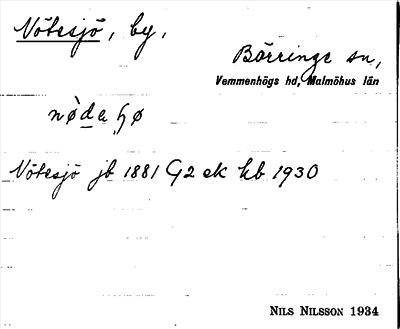 Nötesjö, by,
Börringe sn,
Vemmenhögs hd, Malmöhus län
Nötesjö jb 1881 G2 ek hb 1930
NILS NILSSON 1934